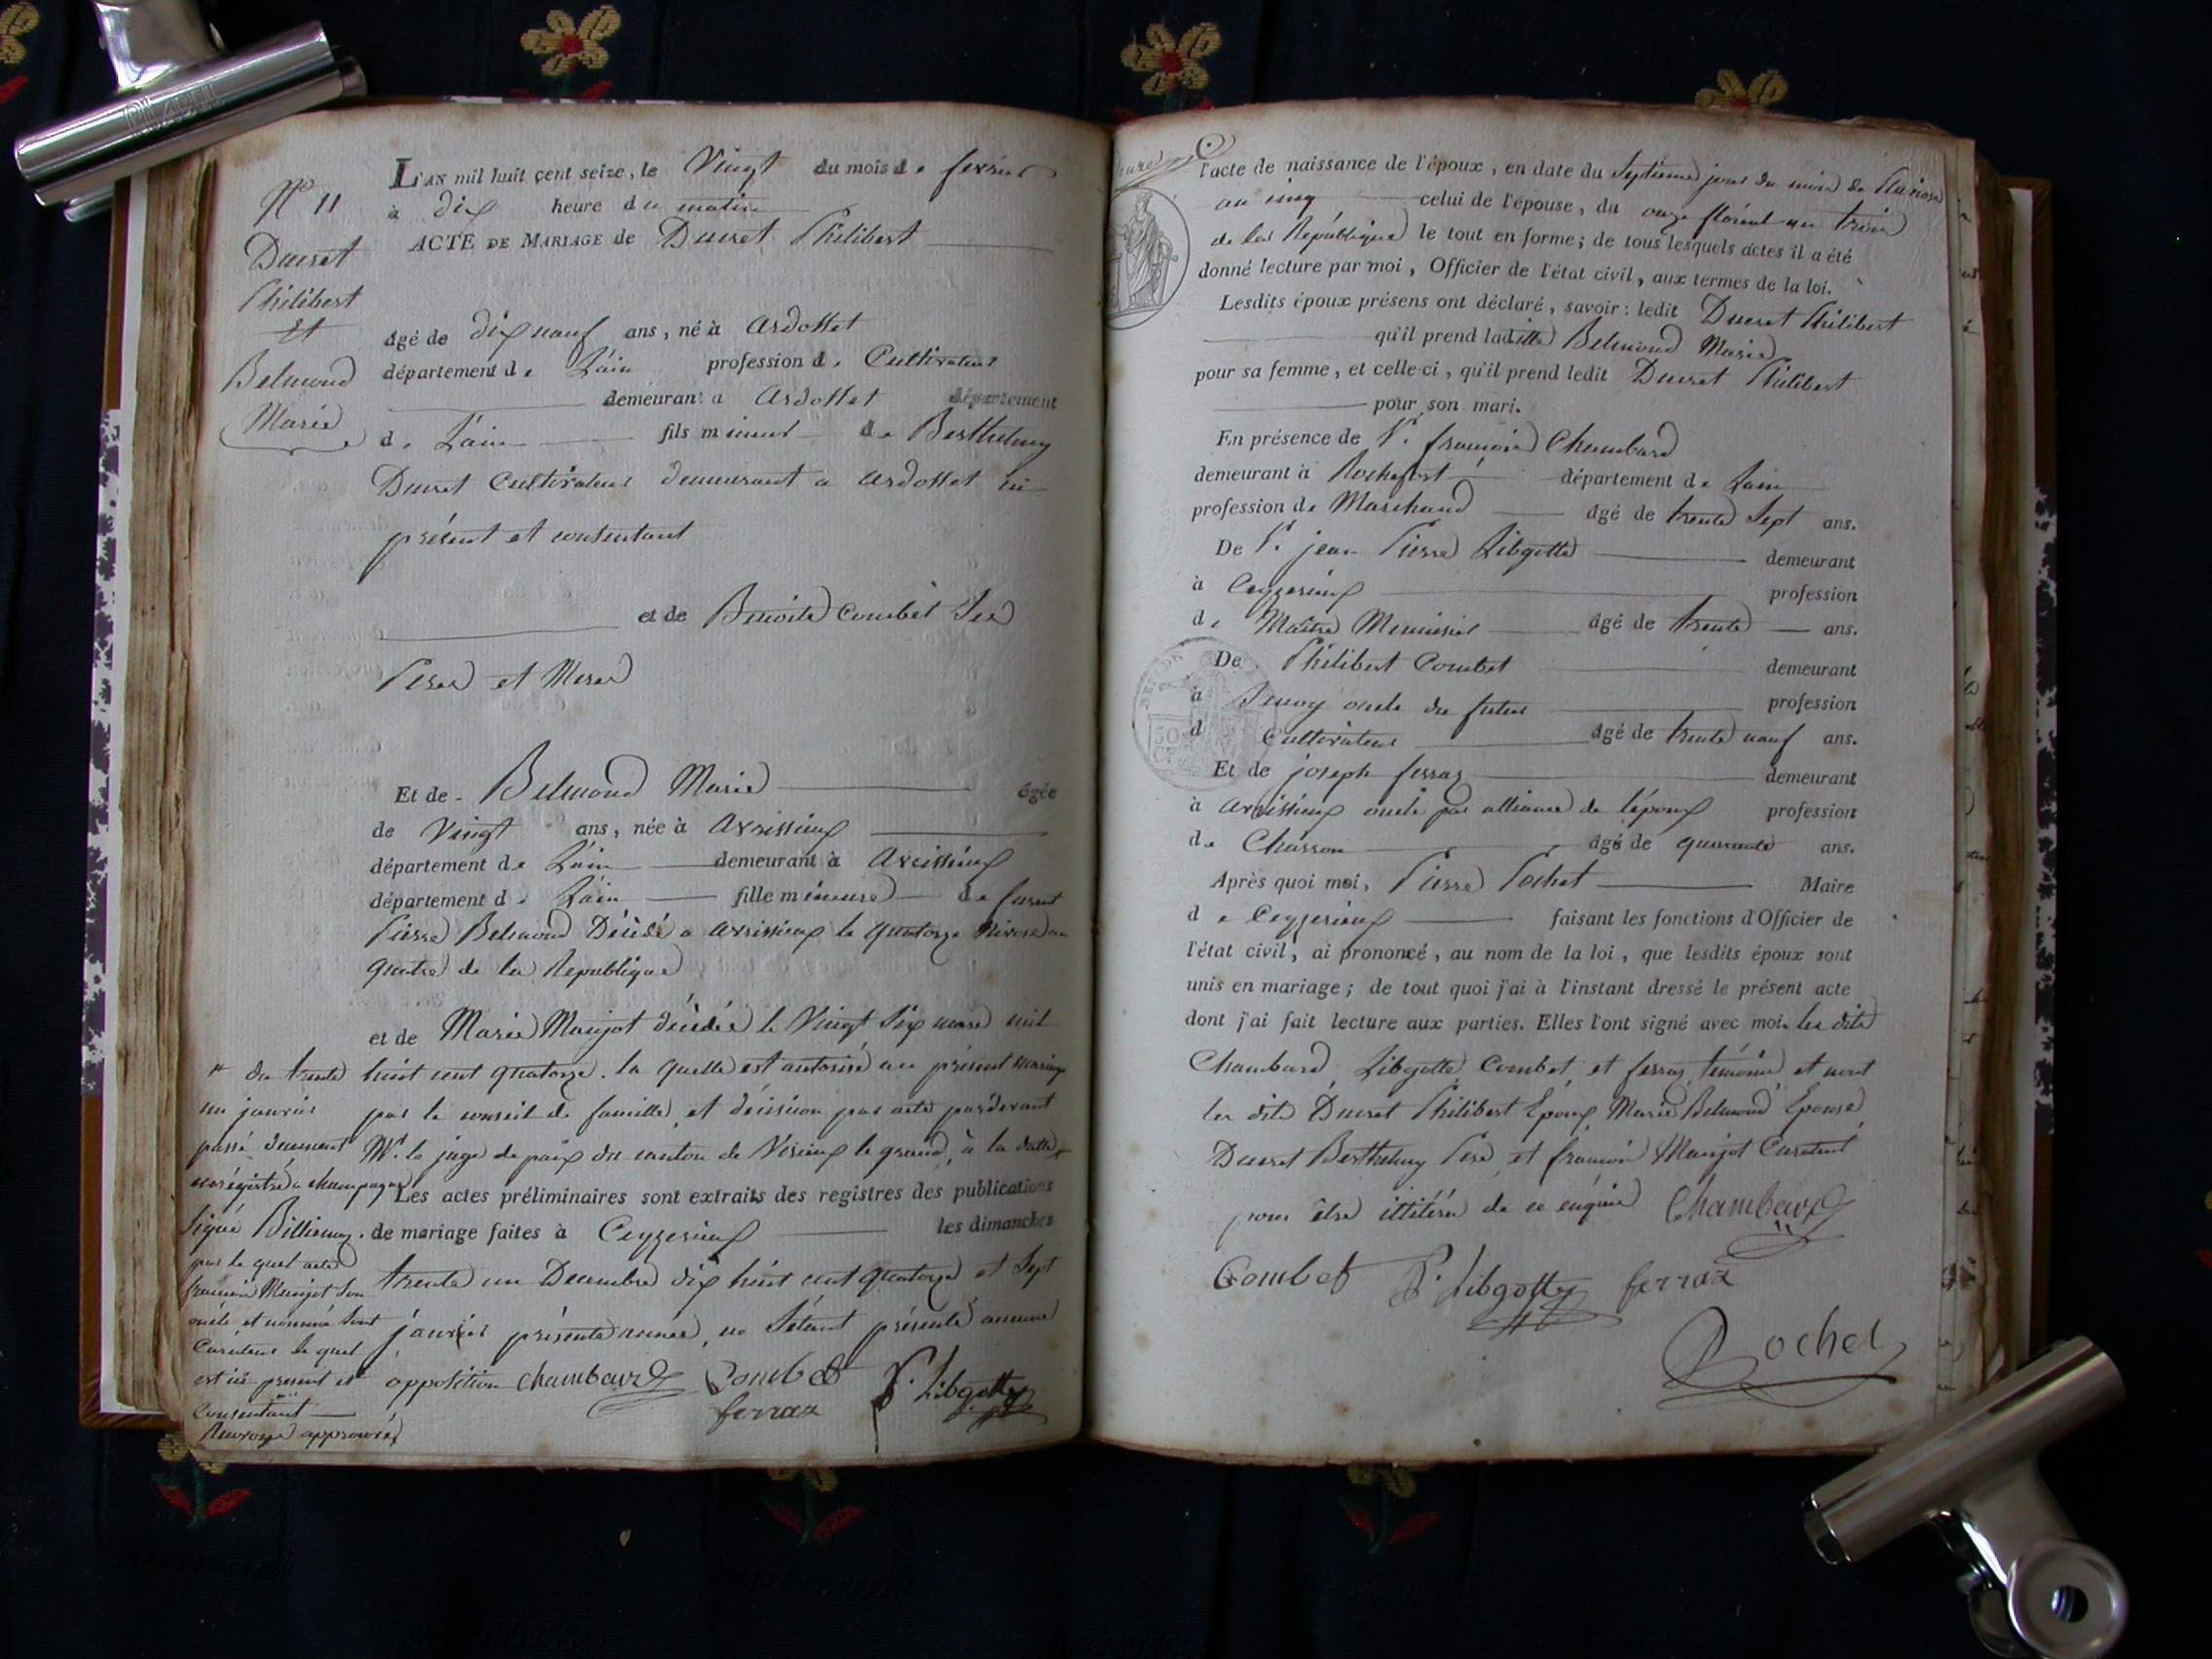 N° 11
Ducret
Philibert
Et
Belmond
Marie
L'AN mil huit cent seize, le Vingt du mois de fevrier
à dix heure du matin
ACTE DE MARIAGE de Ducret Philibert
âgé de dix neuf ans, né à Ardosset
département de L'ain profession de Cultivateur
demeurant à Ardosset département
de L'ain fils mineur de Berthelmy
Ducret Cultivateur demeurant a Ardosset ici
présent et consentant
et de Benoite Combet Ses
Peres et Meres
Et de Belmond Marie âgée
de Vingt ans, née à Avrissieux
département de L'ain demeurant à Avrissieux
département de L'ain fille mineure de
Pierre Belmond Décédé a avrissieux le quatorze Nivose an
quatre de la Republique
et de Marie Manjot décédée le Vingt Six mars mil
huit cent quatorze. la quelle est autorisé au présent mariage
par le conseil de famille, et décision par acte pardevant
Mr. le juge de paix du canton de Virieux le grand, à la datte
Les actes préliminaires sont extraits des registres des publications
de mariage faites à Ceyzerieux les dimanches
trente un Decembre dix huit cent quatorze et Sept
janvier présente année, ne S'étant présenté aucune
opposition chambard Combet P. Libgotte
ferraz
du trente
un janvier
passé duement
enrégistré a champagne
Signé Billiemaz.
par le quel acte
françois Manjot Son
oncle et nommé Sont
Curateur le quel
est ici present et
consentant
Renvoye approuvé
l'acte de naissance de l'époux, en date du Septieme jour du mois de
an cinq celui de l'épouse, du onze floréal an trois
de la République le tout en forme; de tous lesquels actes il a été
donné lecture par moi, Officier de l'état civil, aux termes de la loi.
Lesdits époux présens ont déclaré, savoir: ledit Ducret Philibert
qu'il prend ladite Belmond Marie
pour sa femme, et celle-ci, qu'il prend ledit Ducret Philibert
pour son mari.
En présence de Sr. françois Chambard
demeurant à Rochefort département de L'ain
profession de Marchand âgé de trente Sept ans.
De Sr. jean Pierre Libgotte demeurant
à Ceyzerieux profession
de Maître Menuisier âgé de trente ans.
De Philibert Combet demeurant
à oncle du futur profession
d Cultivateur âgé de trente neuf ans.
Et de joseph ferraz demeurant
à avrissieux oncle par alliance de l'époux profession
de Chârron âgé de quarante ans.
Après quoi moi, Pierre Pochet Maire
de Ceyzerieux faisant les fonctions d'Officier de
l'état civil, ai prononcé, au nom de la loi, que lesdits époux sont
unis en mariage; de tout quoi j'ai à l'instant dressé le présent acte
dont j'ai fait lecture aux parties. Elles l'ont signé avec moi. les dits
Chambard, Libgotte, Combet, et ferraz, témoins et nont
les dits Ducret Philibert Epoux, Marie Belmond Epouse,
Ducret Berthelmy Pere, et françois Manjot Curateur
pour être illitéré de ce enquis Chambard
Combet P. Libgotte ferraz
Pochet